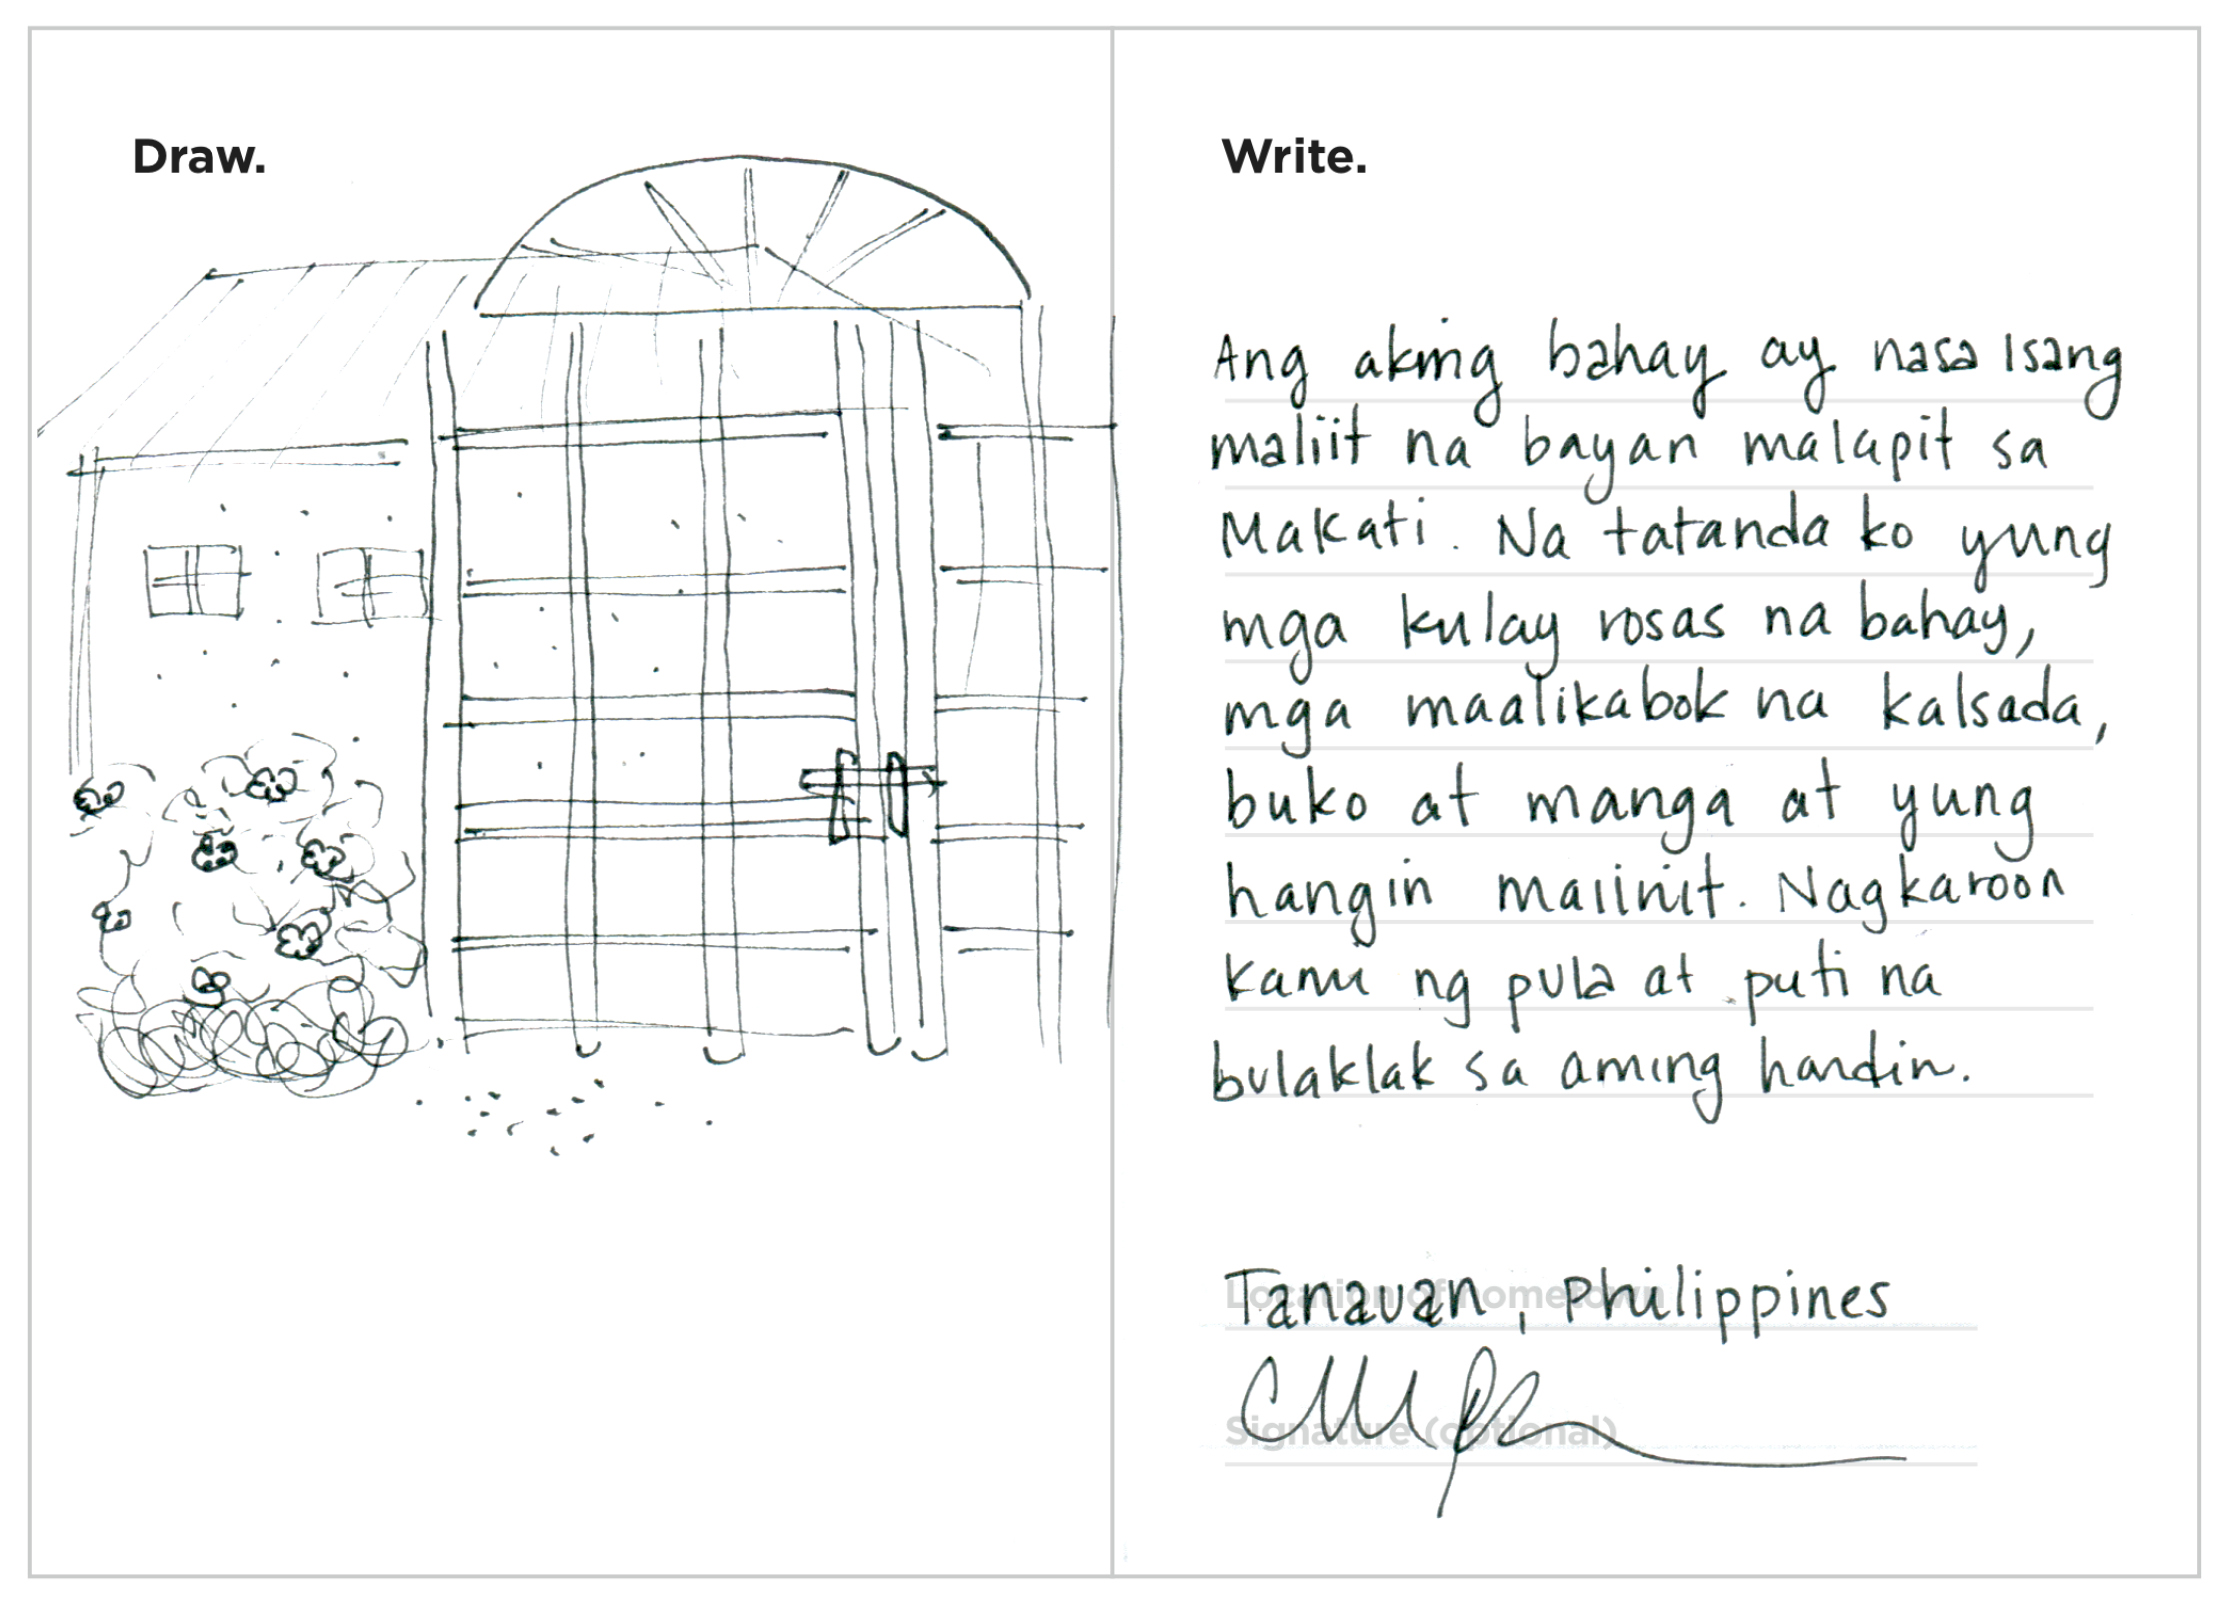 Draw.
Write.
Ang aking bahay ay nasa isang
maliit na bayan malapit sa
Makati. Na tatanda ko yung
mga kulay rosas na bahay,
mga maalikabok na kalsada,
buko at manga at yung
hangin maiinit. Nagkaroon
kami ng pula at puti na
bulaklak sa aming hardin.
Location of hometown
Tanauan, Philippines
Signature (optional)